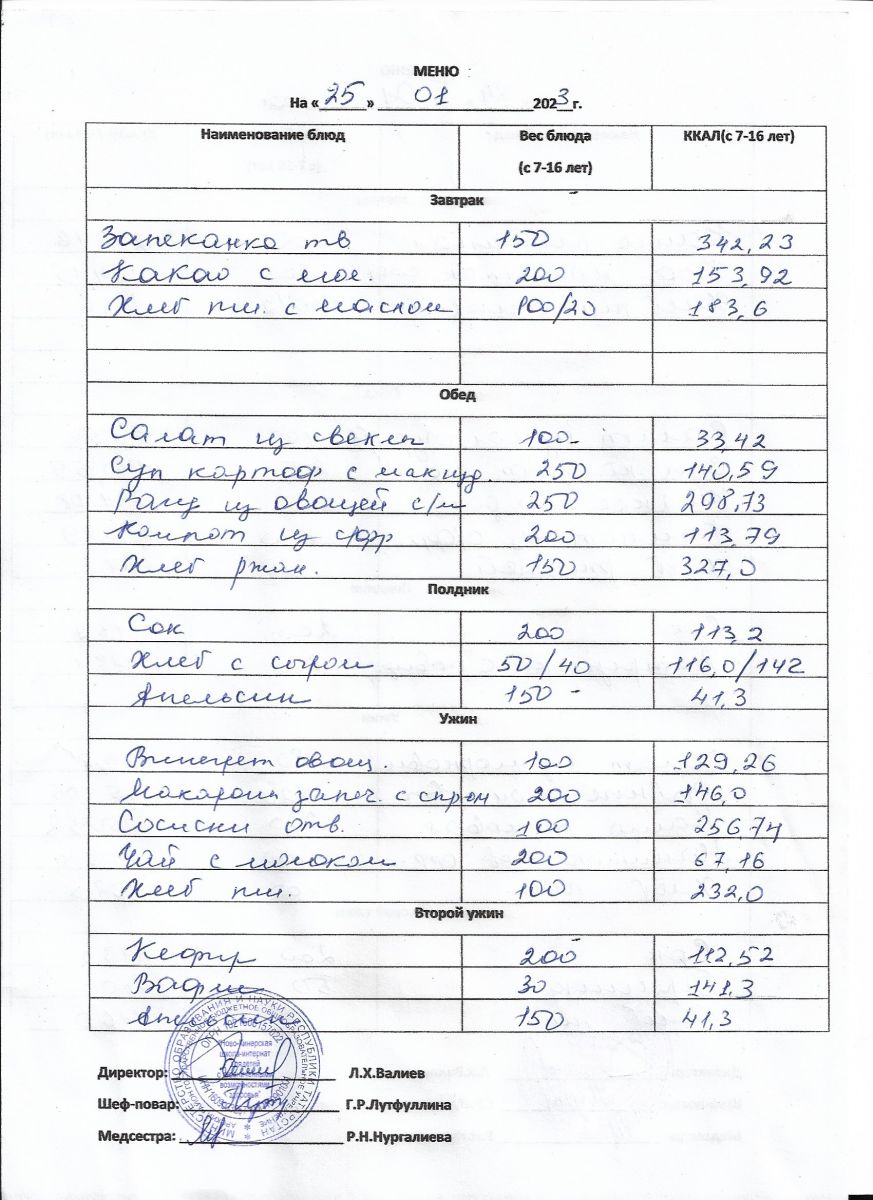 МЕНЮ
На «25» 01 2023г.
Наименование блюд Вес блюда (с 7-16 лет) ККАЛ(с 7-16 лет)
Завтрак
Запеканка тв 150 342,23
Какао с мол. 200 153,92
Хлеб пш. с маслом 100/20 183,6
Обед
Салат из свеклы 100 33,42
Суп картоф с макид. 250 140,59
Рагу из овощей с/м 250 298,73
Компот из с/фр 200 113,79
Хлеб ржан. 150 327,0
Полдник
Сок 200 113,2
Хлеб с сыром 50/40 116,0/142
Апельсин 150 41,3
Ужин
Винегрет овощ. 100 129,26
Макароны запеч. с сыром 200 146,0
Сосиски отв. 100 256,74
Чай с молоком 200 67,16
Хлеб пш. 100 232,0
Второй ужин
Кефир 200 112,52
Вафли 30 141,3
Апельсин 150 41,3
Директор: Л.Х.Валиев
Шеф-повар: Г.Р.Лутфуллина
Медсестра: Р.Н.Нургалиева
МИНИСТЕРСТВО ОБРАЗОВАНИЯ И НАУКИ РЕСПУБЛИКИ ТАТАРСТАН
"Ново-Кинерская
школа-интернат
для детей
возможностями
здоровья"